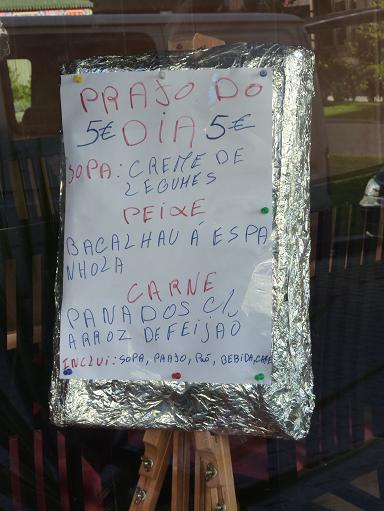 PRATO DO
5€ DIA 5€
SOPA: CREME DE
LEGUMES
PEIXE
BACALHAU Á ESPA
NHOLA
CARNE
PANADOS C/
ARROZ DE FEIJAO
INCLUI: SOPA, PRATO, PÃO, BEBIDA, CAFÉ